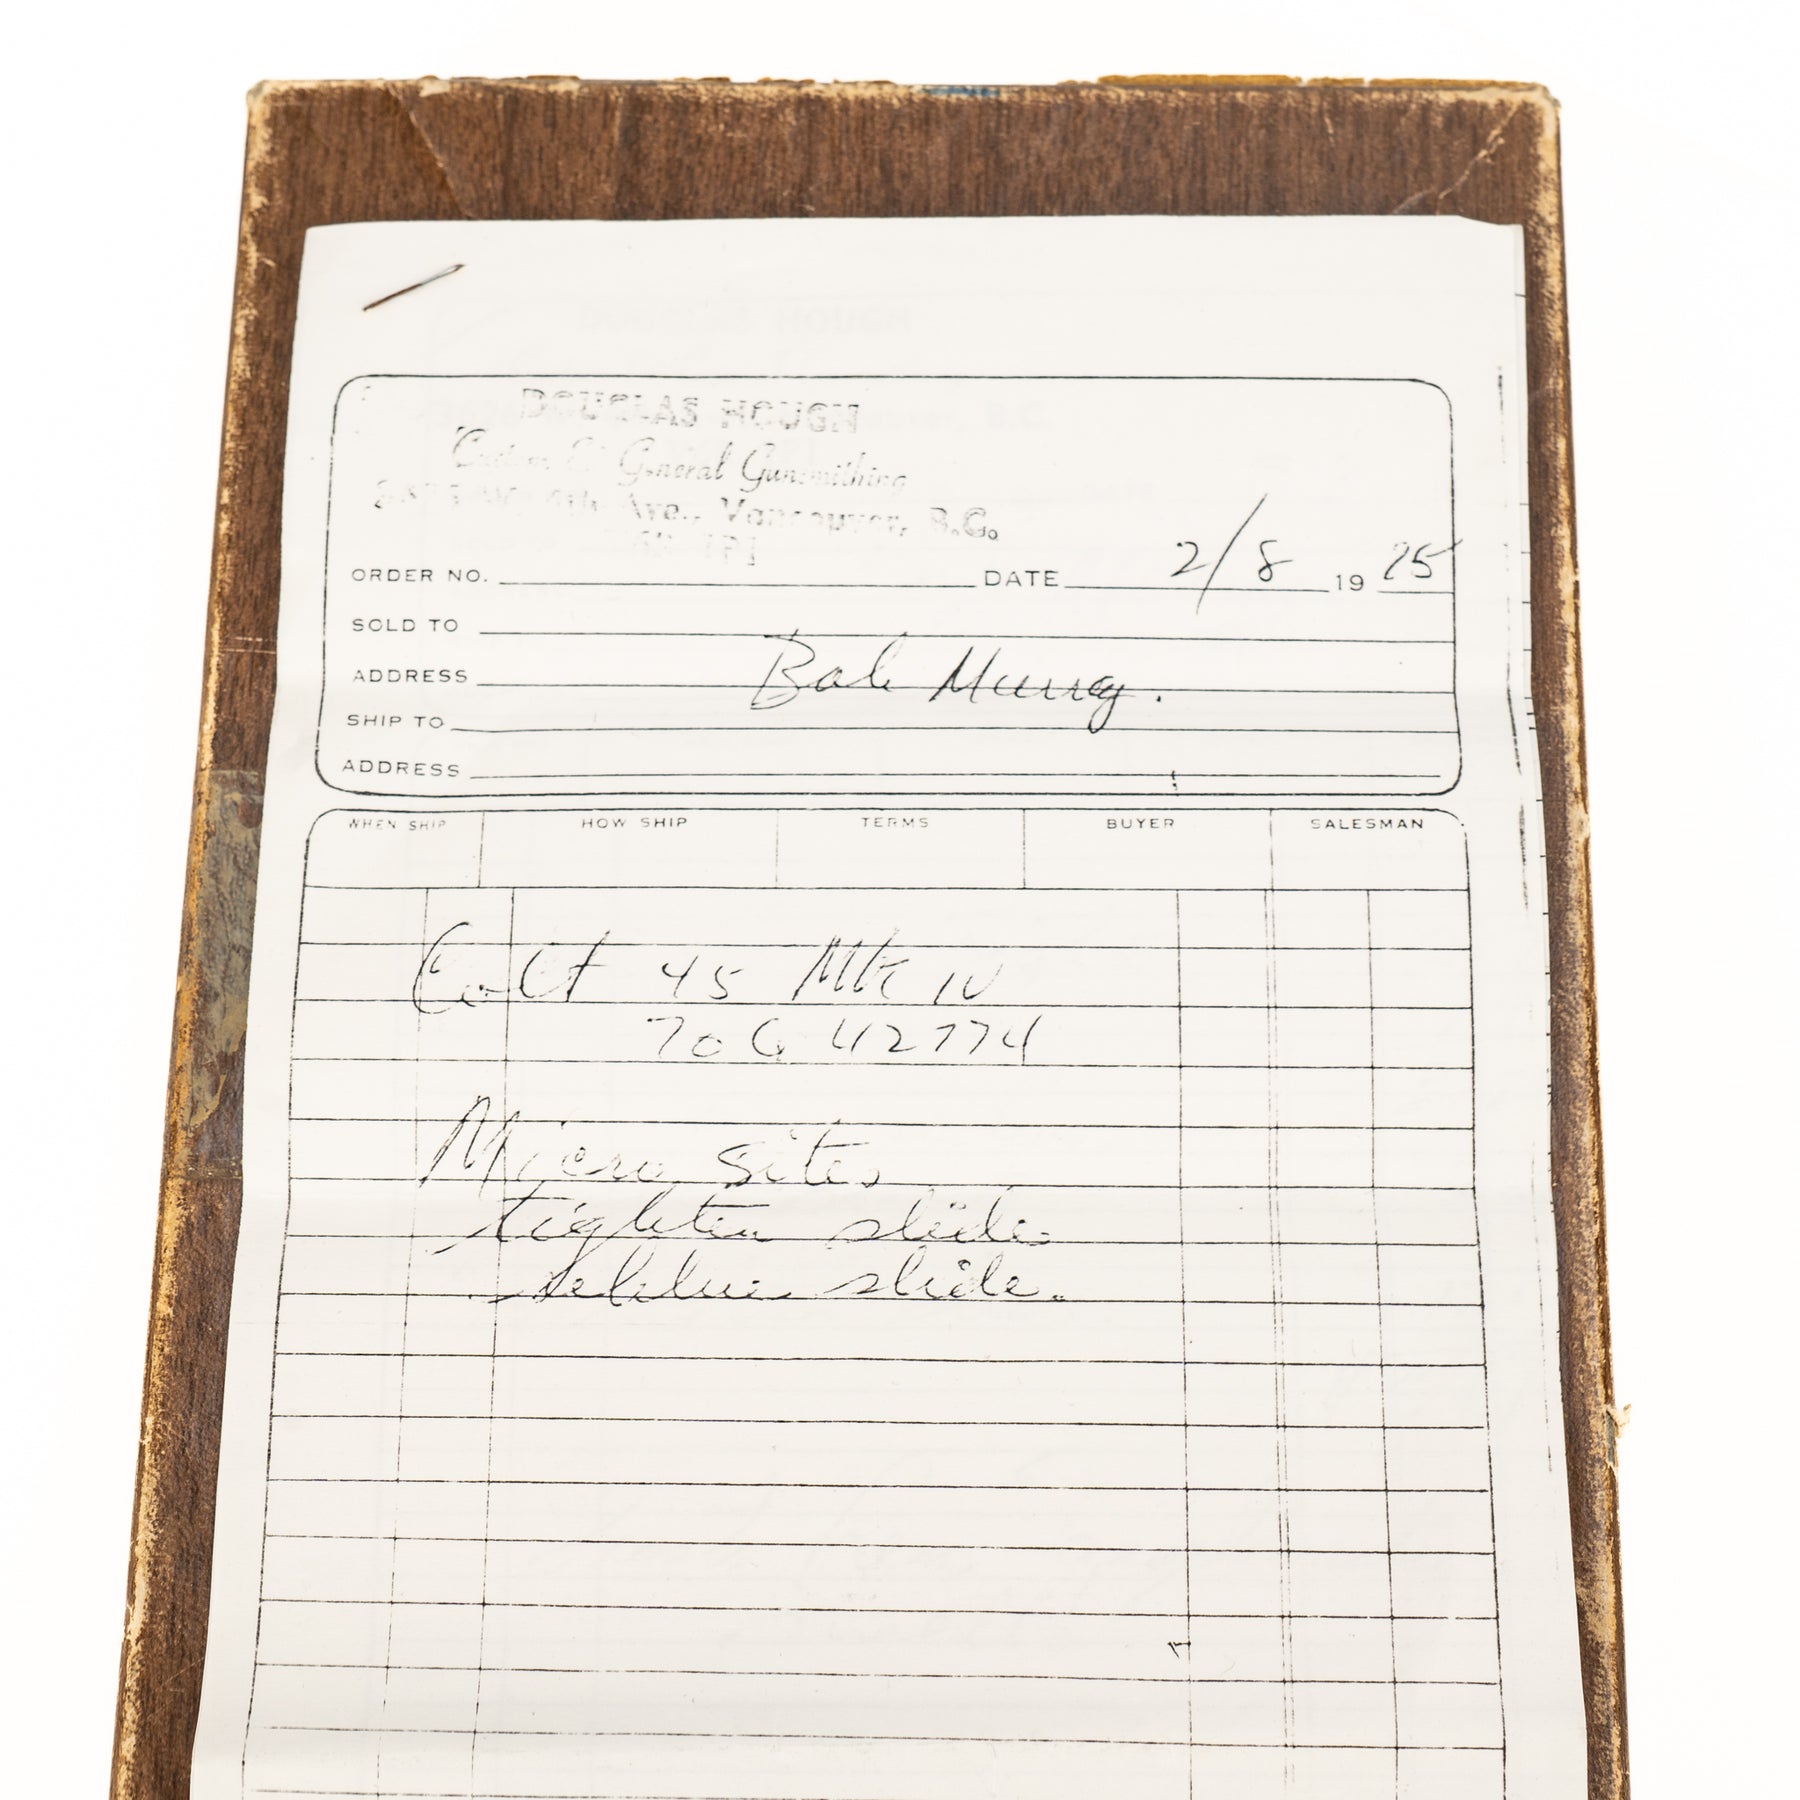 DOUGLAS HOUGH
Custom & General Gunsmithing
4th Ave., Vancouver, B.C.
ORDER NO. DATE 2/8 19 75
SOLD TO
ADDRESS Bob Murray.
SHIP TO
ADDRESS
WHEN SHIP HOW SHIP TERMS BUYER SALESMAN
Colt 45 Mk IV
70G 42774
Micro sites
tighten slide
reblue slide.